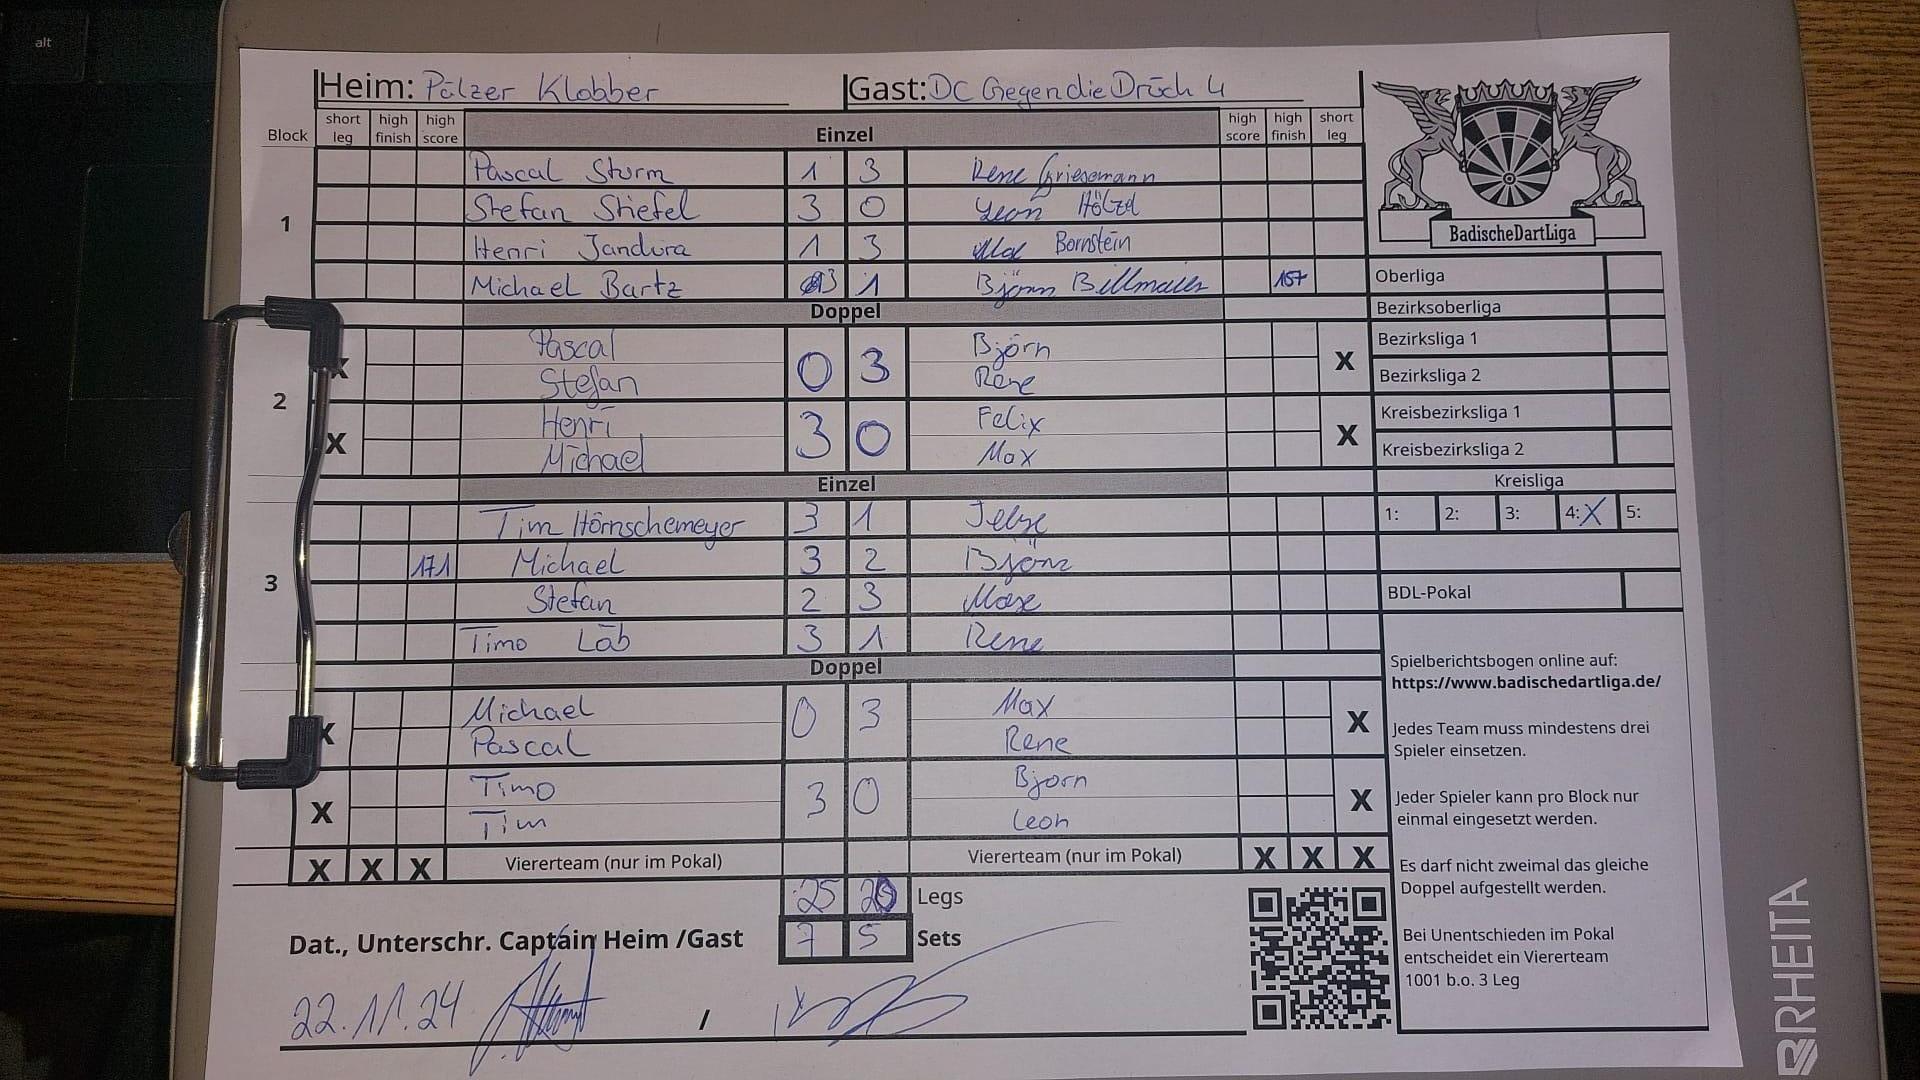 alt
Heim: Pälzer Klobber Gast: DC GegendieDrück 4
Block short leg high finish high score Einzel high score high finish short leg
1
Pascal Sturm 1 3 Rene Griesemann
Stefan Stiefel 3 0 Leon Hölzel
Henri Jandura 1 3 Max Bornstein
Michael Bartz 3 1 Björn Billmaier 157
Doppel
2
X Pascal Stefan 0 3 Björn Rene X
X Henri Michael 3 0 Felix Max X
Einzel
3
Tim Hörnschemeyer 3 1
171 Michael 3 2 Björn
Stefan 2 3 Max
Timo Läb 3 1 Rene
Doppel
X Michael Pascal 0 3 Max Rene X
X Timo Tim 3 0 Bjorn Leon X
X X X Viererteam (nur im Pokal) Viererteam (nur im Pokal) X X X
25 20 Legs
Dat., Unterschr. Captain Heim /Gast 7 5 Sets
22.11.24 /
BadischeDartLiga
Oberliga
Bezirksoberliga
Bezirksliga 1
Bezirksliga 2
Kreisbezirksliga 1
Kreisbezirksliga 2
Kreisliga
1: 2: 3: 4: X 5:
BDL-Pokal
Spielberichtsbogen online auf:
https://www.badischedartliga.de/
Jedes Team muss mindestens drei
Spieler einsetzen.
Jeder Spieler kann pro Block nur
einmal eingesetzt werden.
Es darf nicht zweimal das gleiche
Doppel aufgestellt werden.
Bei Unentschieden im Pokal
entscheidet ein Viererteam
1001 b.o. 3 Leg
RHEITA